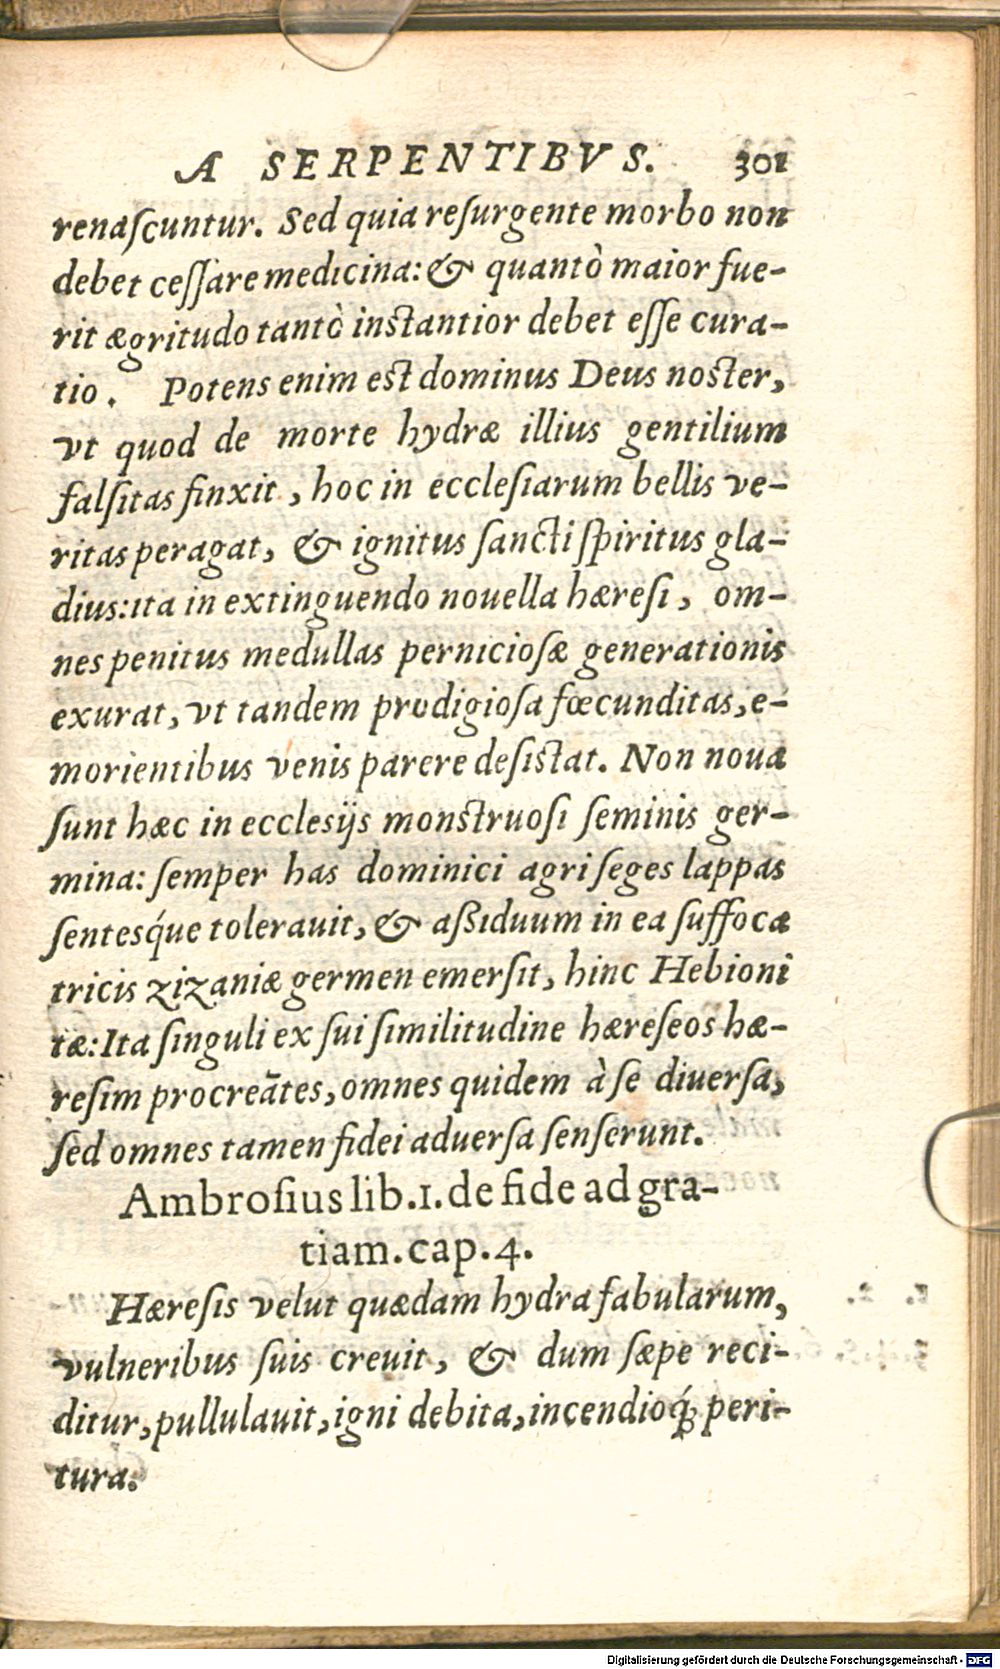 A SERPENTIBVS. 301
renaſcuntur. Sed quia reſurgente morbo non
debet ceſſare medicina: & quantò maior fue-
rit ægritudo tantò inſtantior debet eſſe cura-
tio. Potens enim eſt dominus Deus noſter,
vt quod de morte hydræ illius gentilium
falſitas finxit, hoc in eccleſiarum bellis ve-
ritas peragat, & ignitus ſancti ſpiritus gla-
dius: ita in extinguendo nouella hæreſi, om-
nes penitus medullas pernicioſæ generationis
exurat, vt tandem prodigioſa fœcunditas, e-
morientibus venis parere deſiſtat. Non noua
ſunt hæc in eccleſijs monſtruoſi ſeminis ger-
mina: ſemper has dominici agri ſeges lappas
ſentesq́ue tolerauit, & aßiduum in ea ſuffoca
tricis zizaniæ germen emerſit, hinc Hebioni
tæ: Ita ſinguli ex ſui ſimilitudine hæreſeos hæ-
reſim procreãtes, omnes quidem à ſe diuerſa,
ſed omnes tamen fidei aduerſa ſenſerunt.
Ambroſius lib. 1. de fide ad gra-
tiam. cap. 4.
Hæreſis velut quædam hydra fabularum,
vulneribus ſuis creuit, & dum ſæpe reci-
ditur, pullulauit, igni debita, incendioq́; peri-
tura.
Digitalisierung gefördert durch die Deutsche Forschungsgemeinschaft - DFG